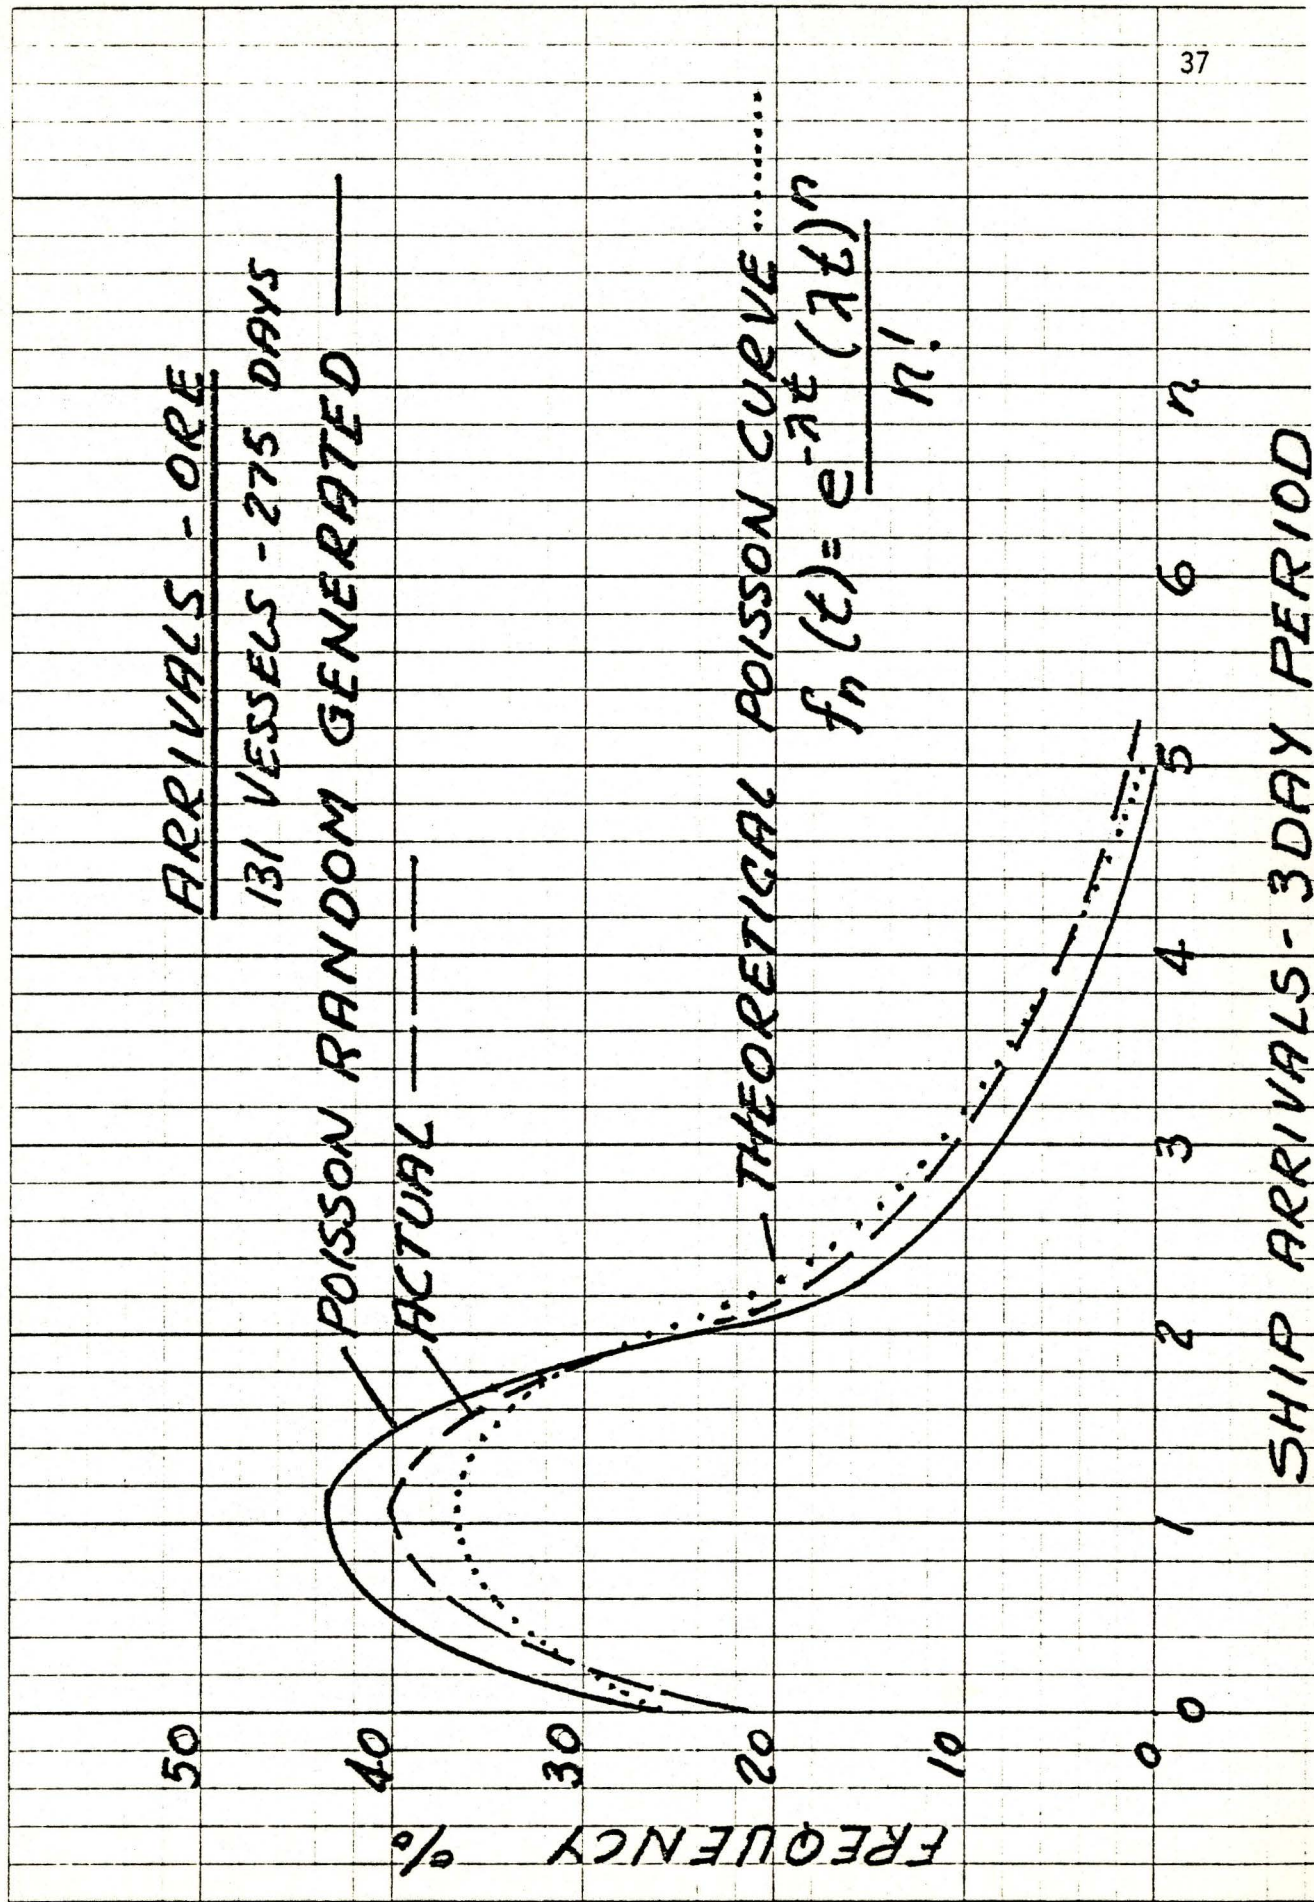 37
ARRIVALS - ORE
131 VESSELS - 275 DAYS
POISSON RANDOM GENERATED
ACTUAL
THEORETICAL POISSON CURVE
fn (t) = e^-λt (λt)^n
n!
50
40
30
20
10
0
FREQUENCY %
0 1 2 3 4 5 6 n
SHIP ARRIVALS - 3 DAY PERIOD